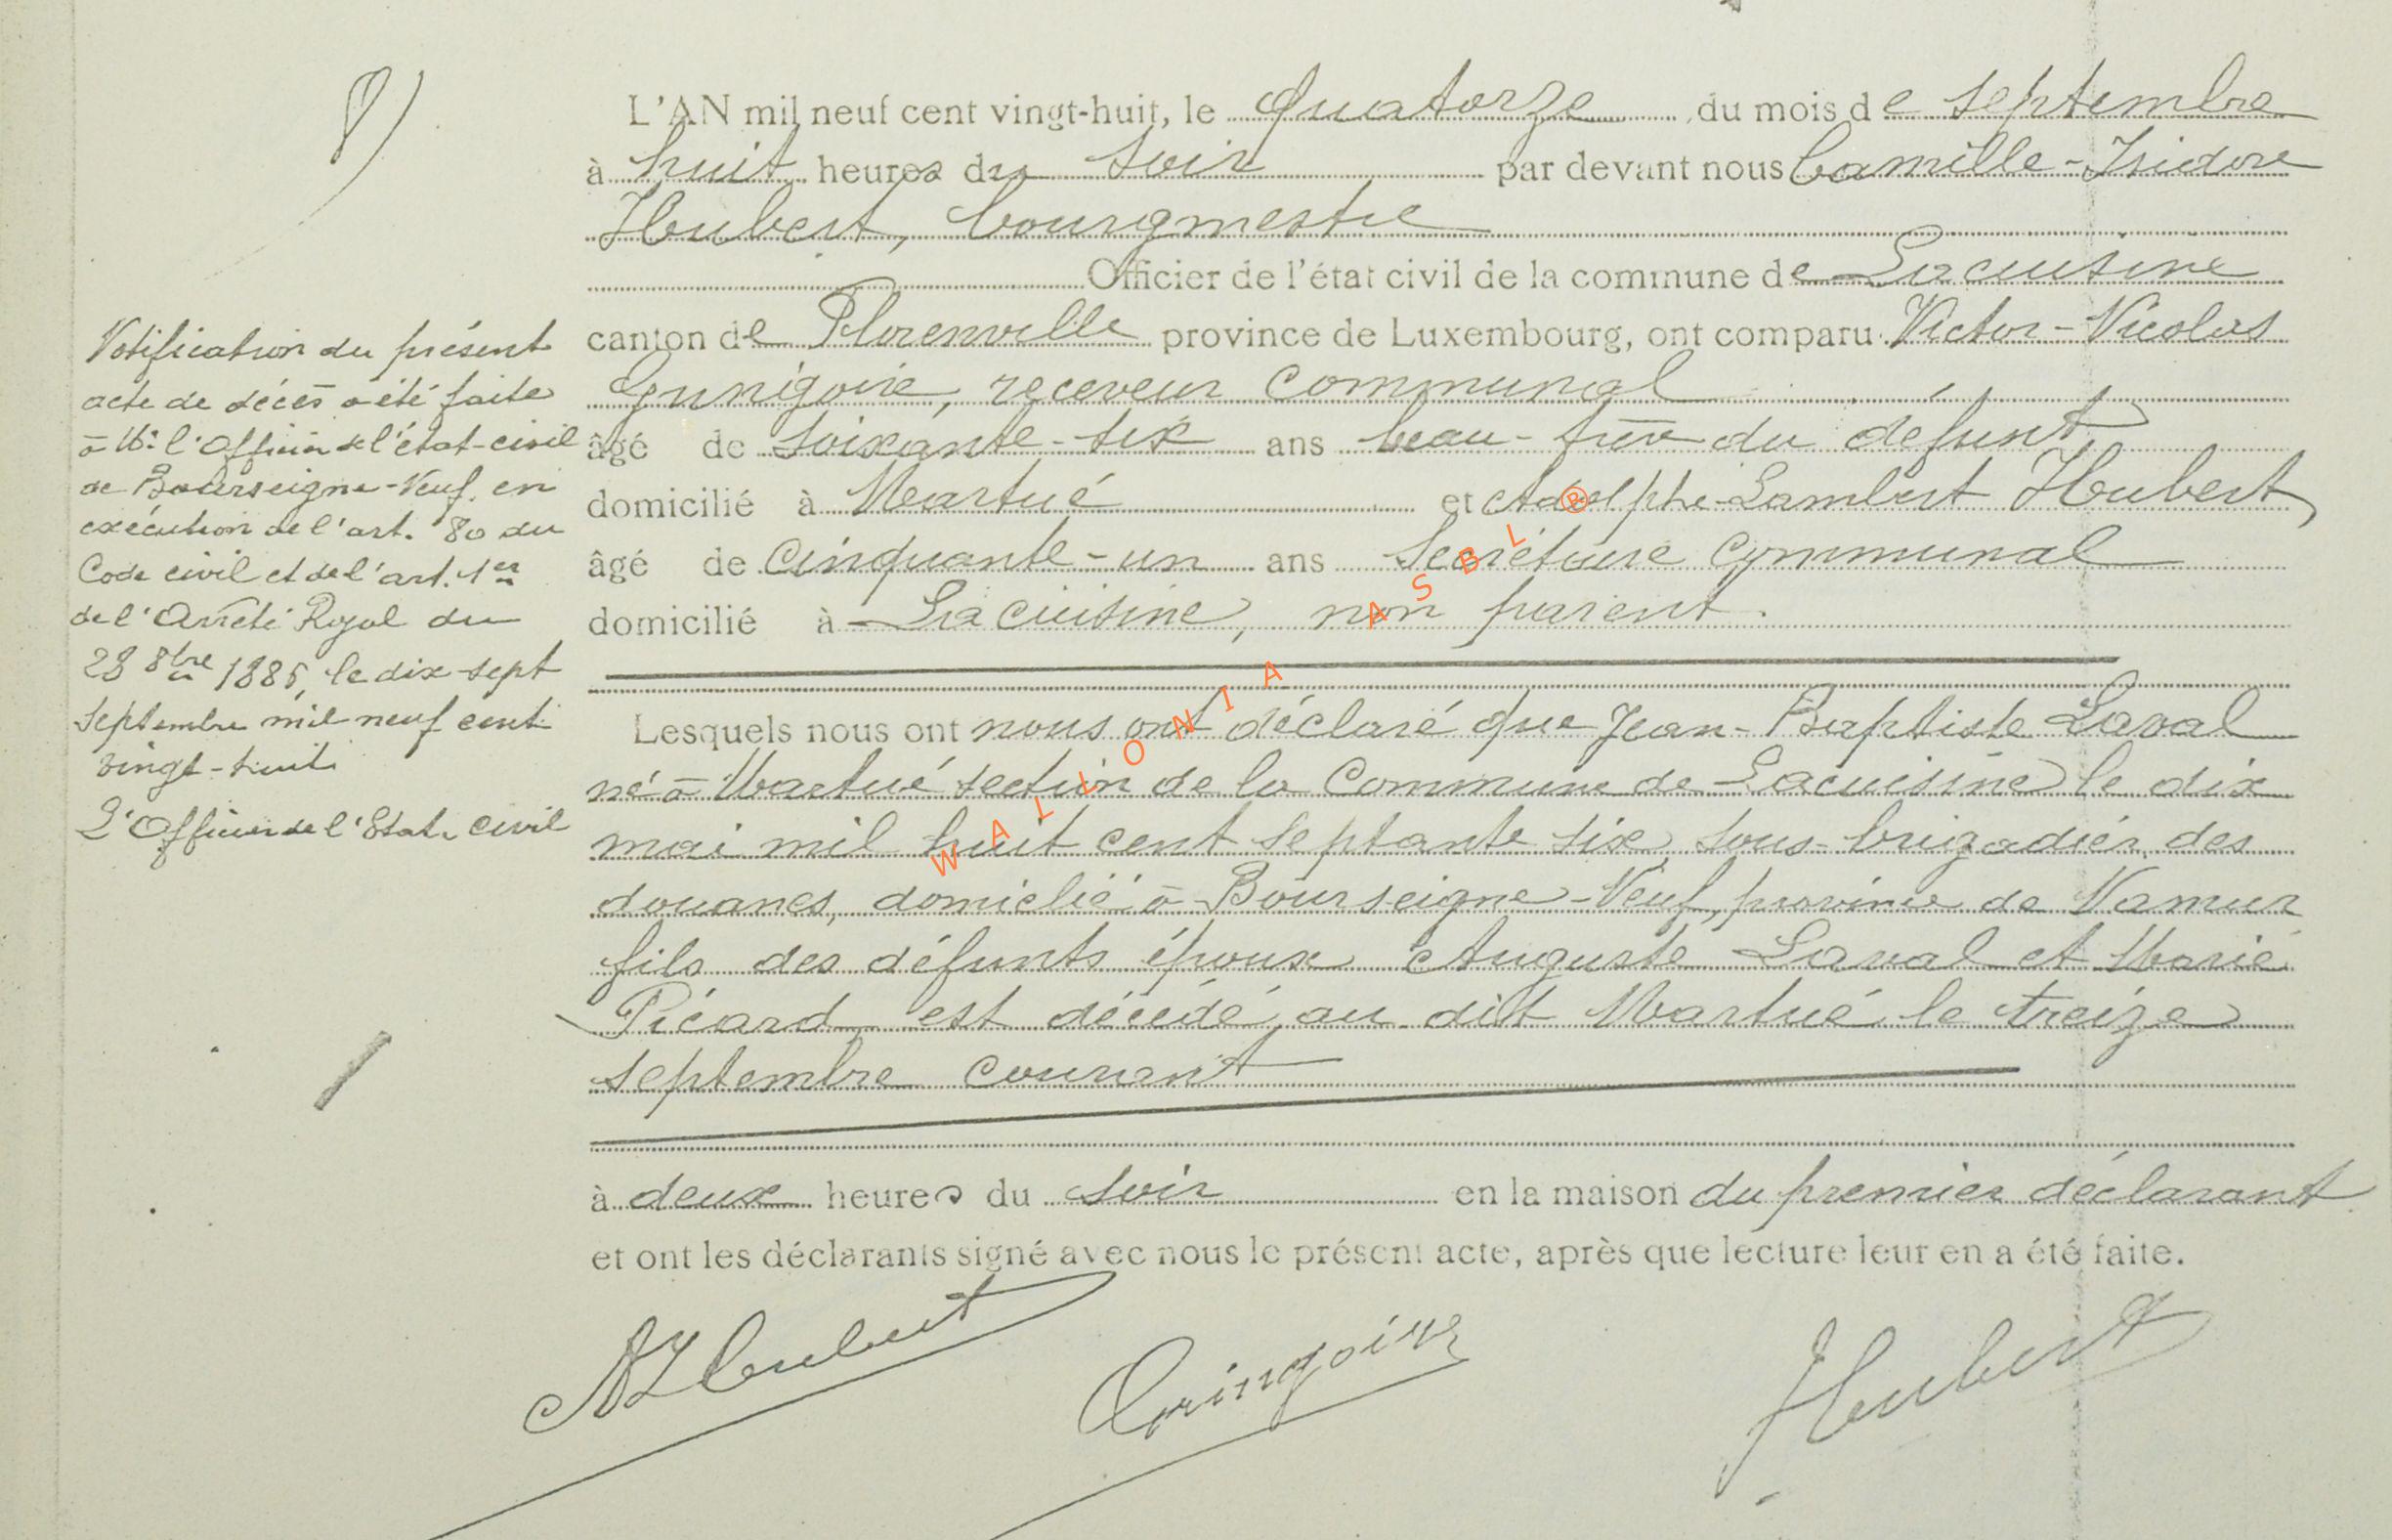 8)
L'AN mil neuf cent vingt-huit, le quatorze du mois de septembre
à huit heures du soir par devant nous Camille-Isidore
Hubert, bourgmestre
Officier de l'état civil de la commune de Lacuisine
canton de Florenville province de Luxembourg, ont comparu Victor-Nicolas
receveur communal
âgé de soixante-six ans beau-frère du défunt
domicilié à Martué et Adolphe-Lambert Hubert
âgé de cinquante-un ans secrétaire communal
domicilié à Lacuisine, non parent.
Lesquels nous ont nous ont déclaré que Jean-Baptiste Laval
né à Martué section de la Commune de Lacuisine le dix
mai mil huit cent septante six, sous-brigadier des
douanes, domicilié à Bourseigne-Neuf, province de Namur
fils des défunts époux Auguste Laval et Marie
Picard est décédé, au dit Martué le treize
septembre courant
à deux heures du soir en la maison du premier déclarant
et ont les déclarants signé avec nous le présent acte, après que lecture leur en a été faite.
AHubert Gringoire Hubert
Notification du présent
acte de décès a été faite
à Mr l'Officier de l'état-civil
de Bourseigne-Neuf, en
exécution de l'art. 80 du
Code civil et de l'art. 1er
de l'Arrêté Royal du
28 8bre 1885, le dix-sept
septembre mil neuf cent
vingt-huit
L'Officier de l'Etat civil
WALLONIA ASBL ®